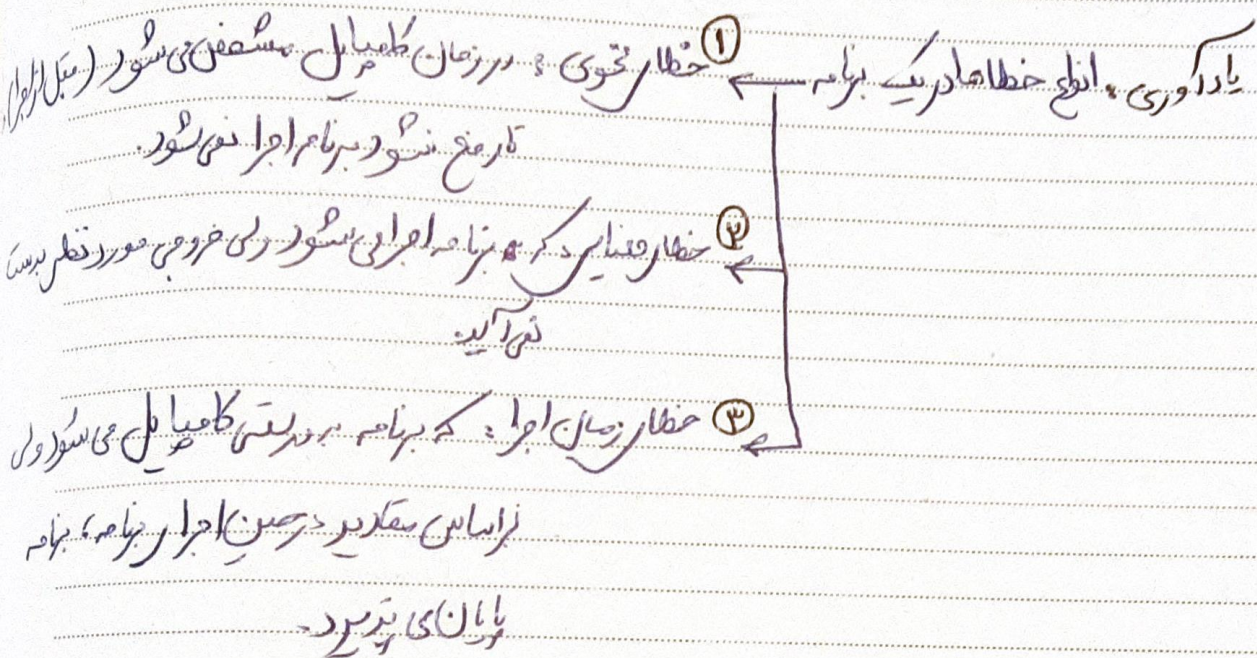 یادآوری: انواع خطاها در یک برنامه ① خطای نحوی: در زمان کامپایل مشخص می‌شود (قبل از اجرا)
تا رفع نشود برنامه اجرا نمی‌شود.
② خطای معنایی: که برنامه اجرا می‌شود ولی خروجی مورد نظر بدست
نمی‌آید.
③ خطای زمان اجرا: که برنامه به درستی کامپایل می‌شود ولی
براساس مقادیر در حین اجرای برنامه، برنامه
پایان می‌پذیرد.